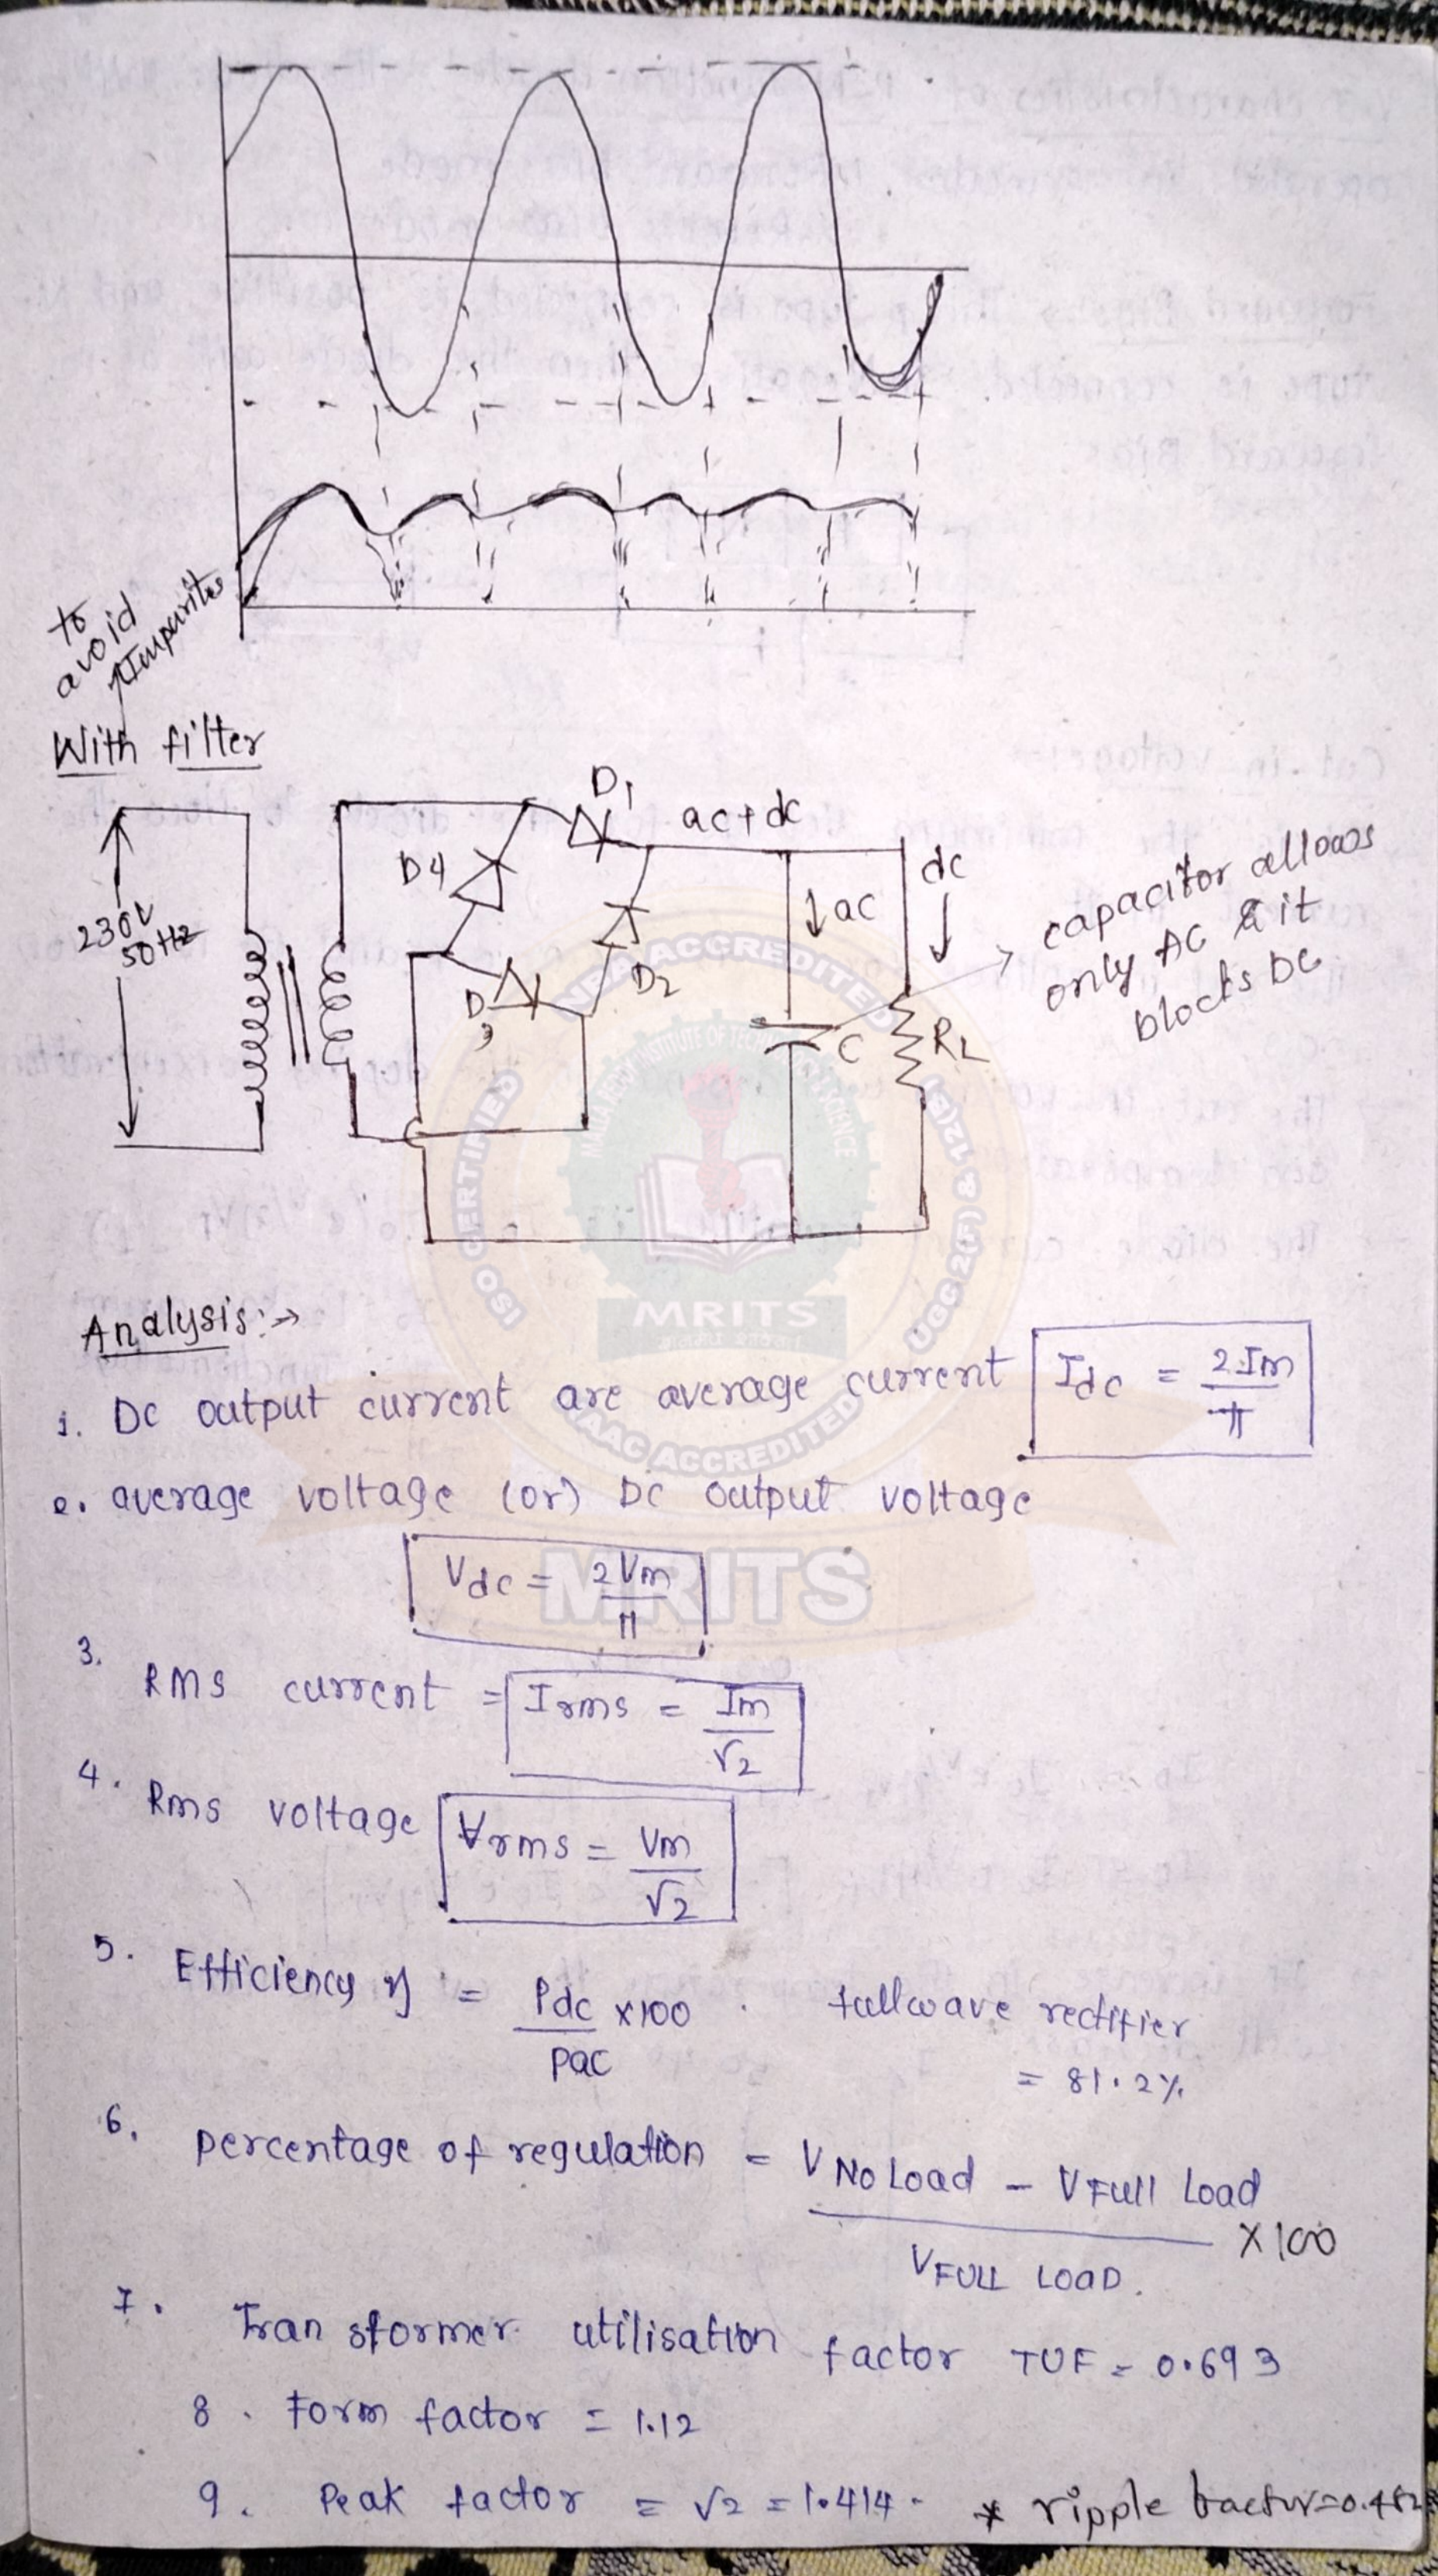 to
avoid
Impurites
With filter
D1
ac+dc
D4
dc
230V
50Hz
↓ac
capacitor allows
only AC & it
blocks DC
D2
D3
C
RL
NBA ACCREDITED
ISO CERTIFIED
UGC 2(F) & 12(B)
MRITS
NAAC ACCREDITED
MRITS
Analysis:→
1. DC output current are average current Idc = 2Im/π
2. average voltage (or) DC output voltage
Vdc = 2Vm/π
3. RMS current = Irms = Im/√2
4. Rms voltage Vrms = Vm/√2
5. Efficiency η = Pdc/Pac x100 . fullwave rectifier
= 81.2%
6. percentage of regulation = V No Load - V Full Load
X100
V FULL LOAD.
7. Transformer utilisation factor TUF = 0.693
8. Form factor = 1.12
9. Peak factor = √2 = 1.414. * ripple factor=0.482